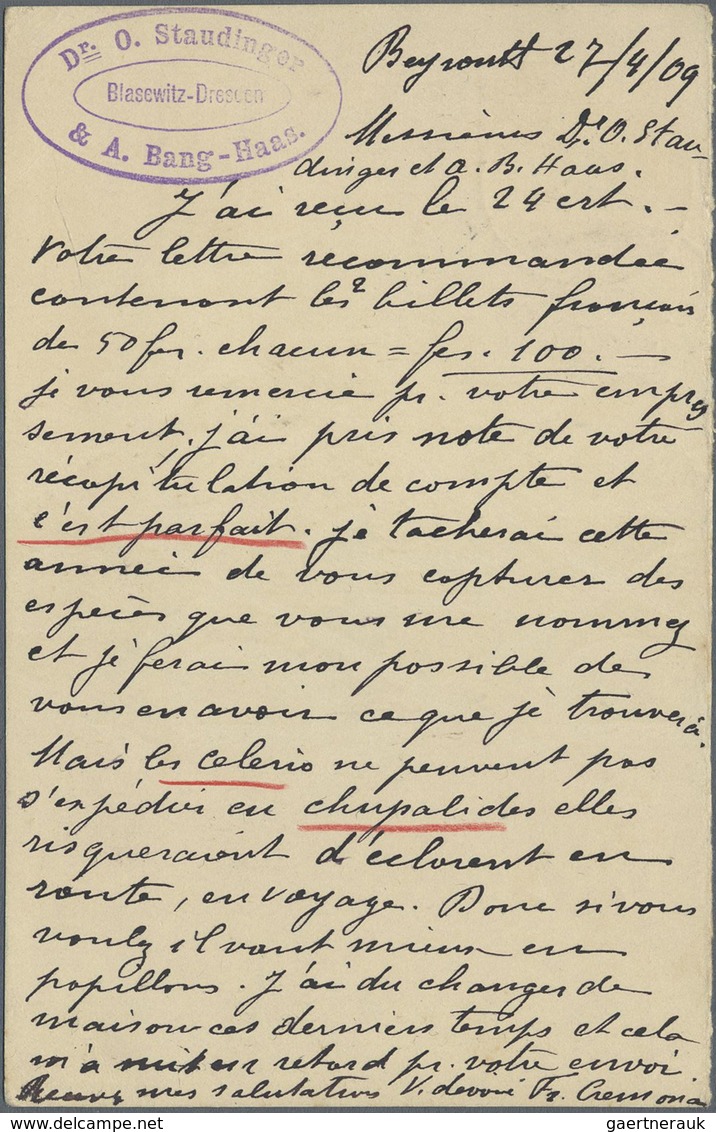 Dr. O. Staudinger
Blasewitz-Dresden
& A. Bang-Haas.
Beyrouth 27/4/09
Messieurs Dr. O. Stau-
dinger et A. B. Haas.
J'ai reçu le 24 crt. -
votre lettre recommandée
contenant les 2 billets français
de 50 fr. chacun = frs. 100. -
je vous remercie pr. votre empres
sement, j'ai pris note de votre
récapitulation de compte et
c'est parfait. je tacherai cette
année de vous capturer des
espèces que vous me nommez
et je ferai mon possible de
vous en avoir ce que je trouverai.
Mais les celerio ne peuvent pas
s'expédier en chrysalides elles
risqueraient d'éclorent en
route, en voyage. Donc si vous
voulez il vaut mieux en
papillons. J'ai du changer de
maison ces derniers temps et cela
m'a mit en retard pr. votre envoi
mes salutations V. devoué Fr. Cremona
gaertnerauk